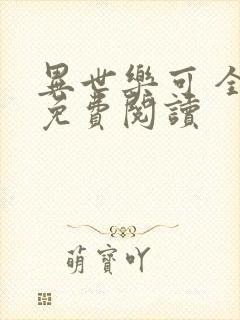 異世樂可全
免費閱讀
萌寶吖